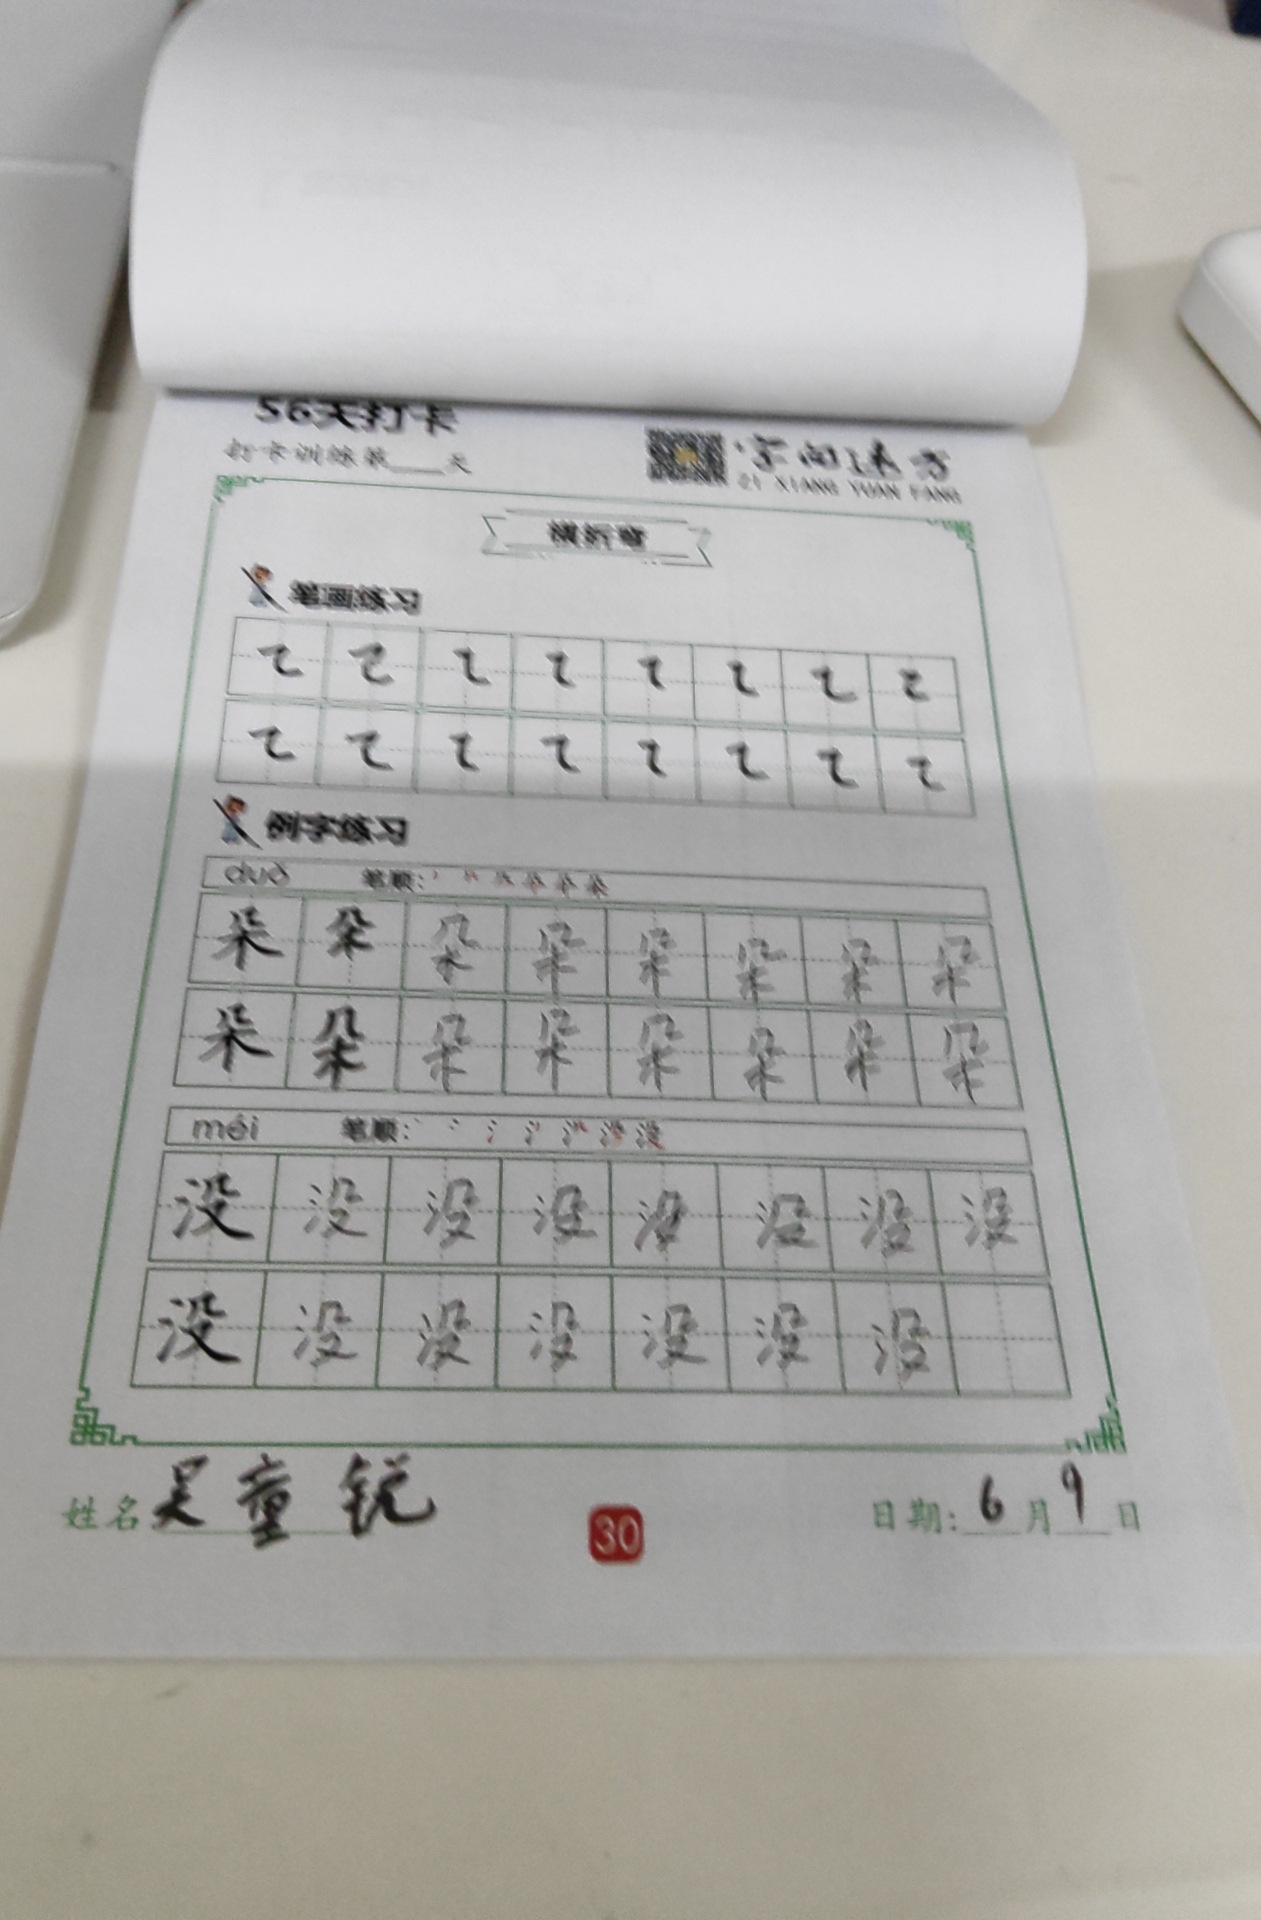 56天打卡
打卡训练第___天
字向远方
ZI XIANG YUAN FANG
横折弯
笔画练习
例字练习
duǒ 笔顺:
朵 朵 朵 朵 朵 朵 朵 朵
朵 朵 朵 朵 朵 朵 朵 朵
méi 笔顺:
没 没 没 没 没 没 没 没
没 没 没 没 没 没 没
姓名 吴童锐
30
日期: 6 月 9 日